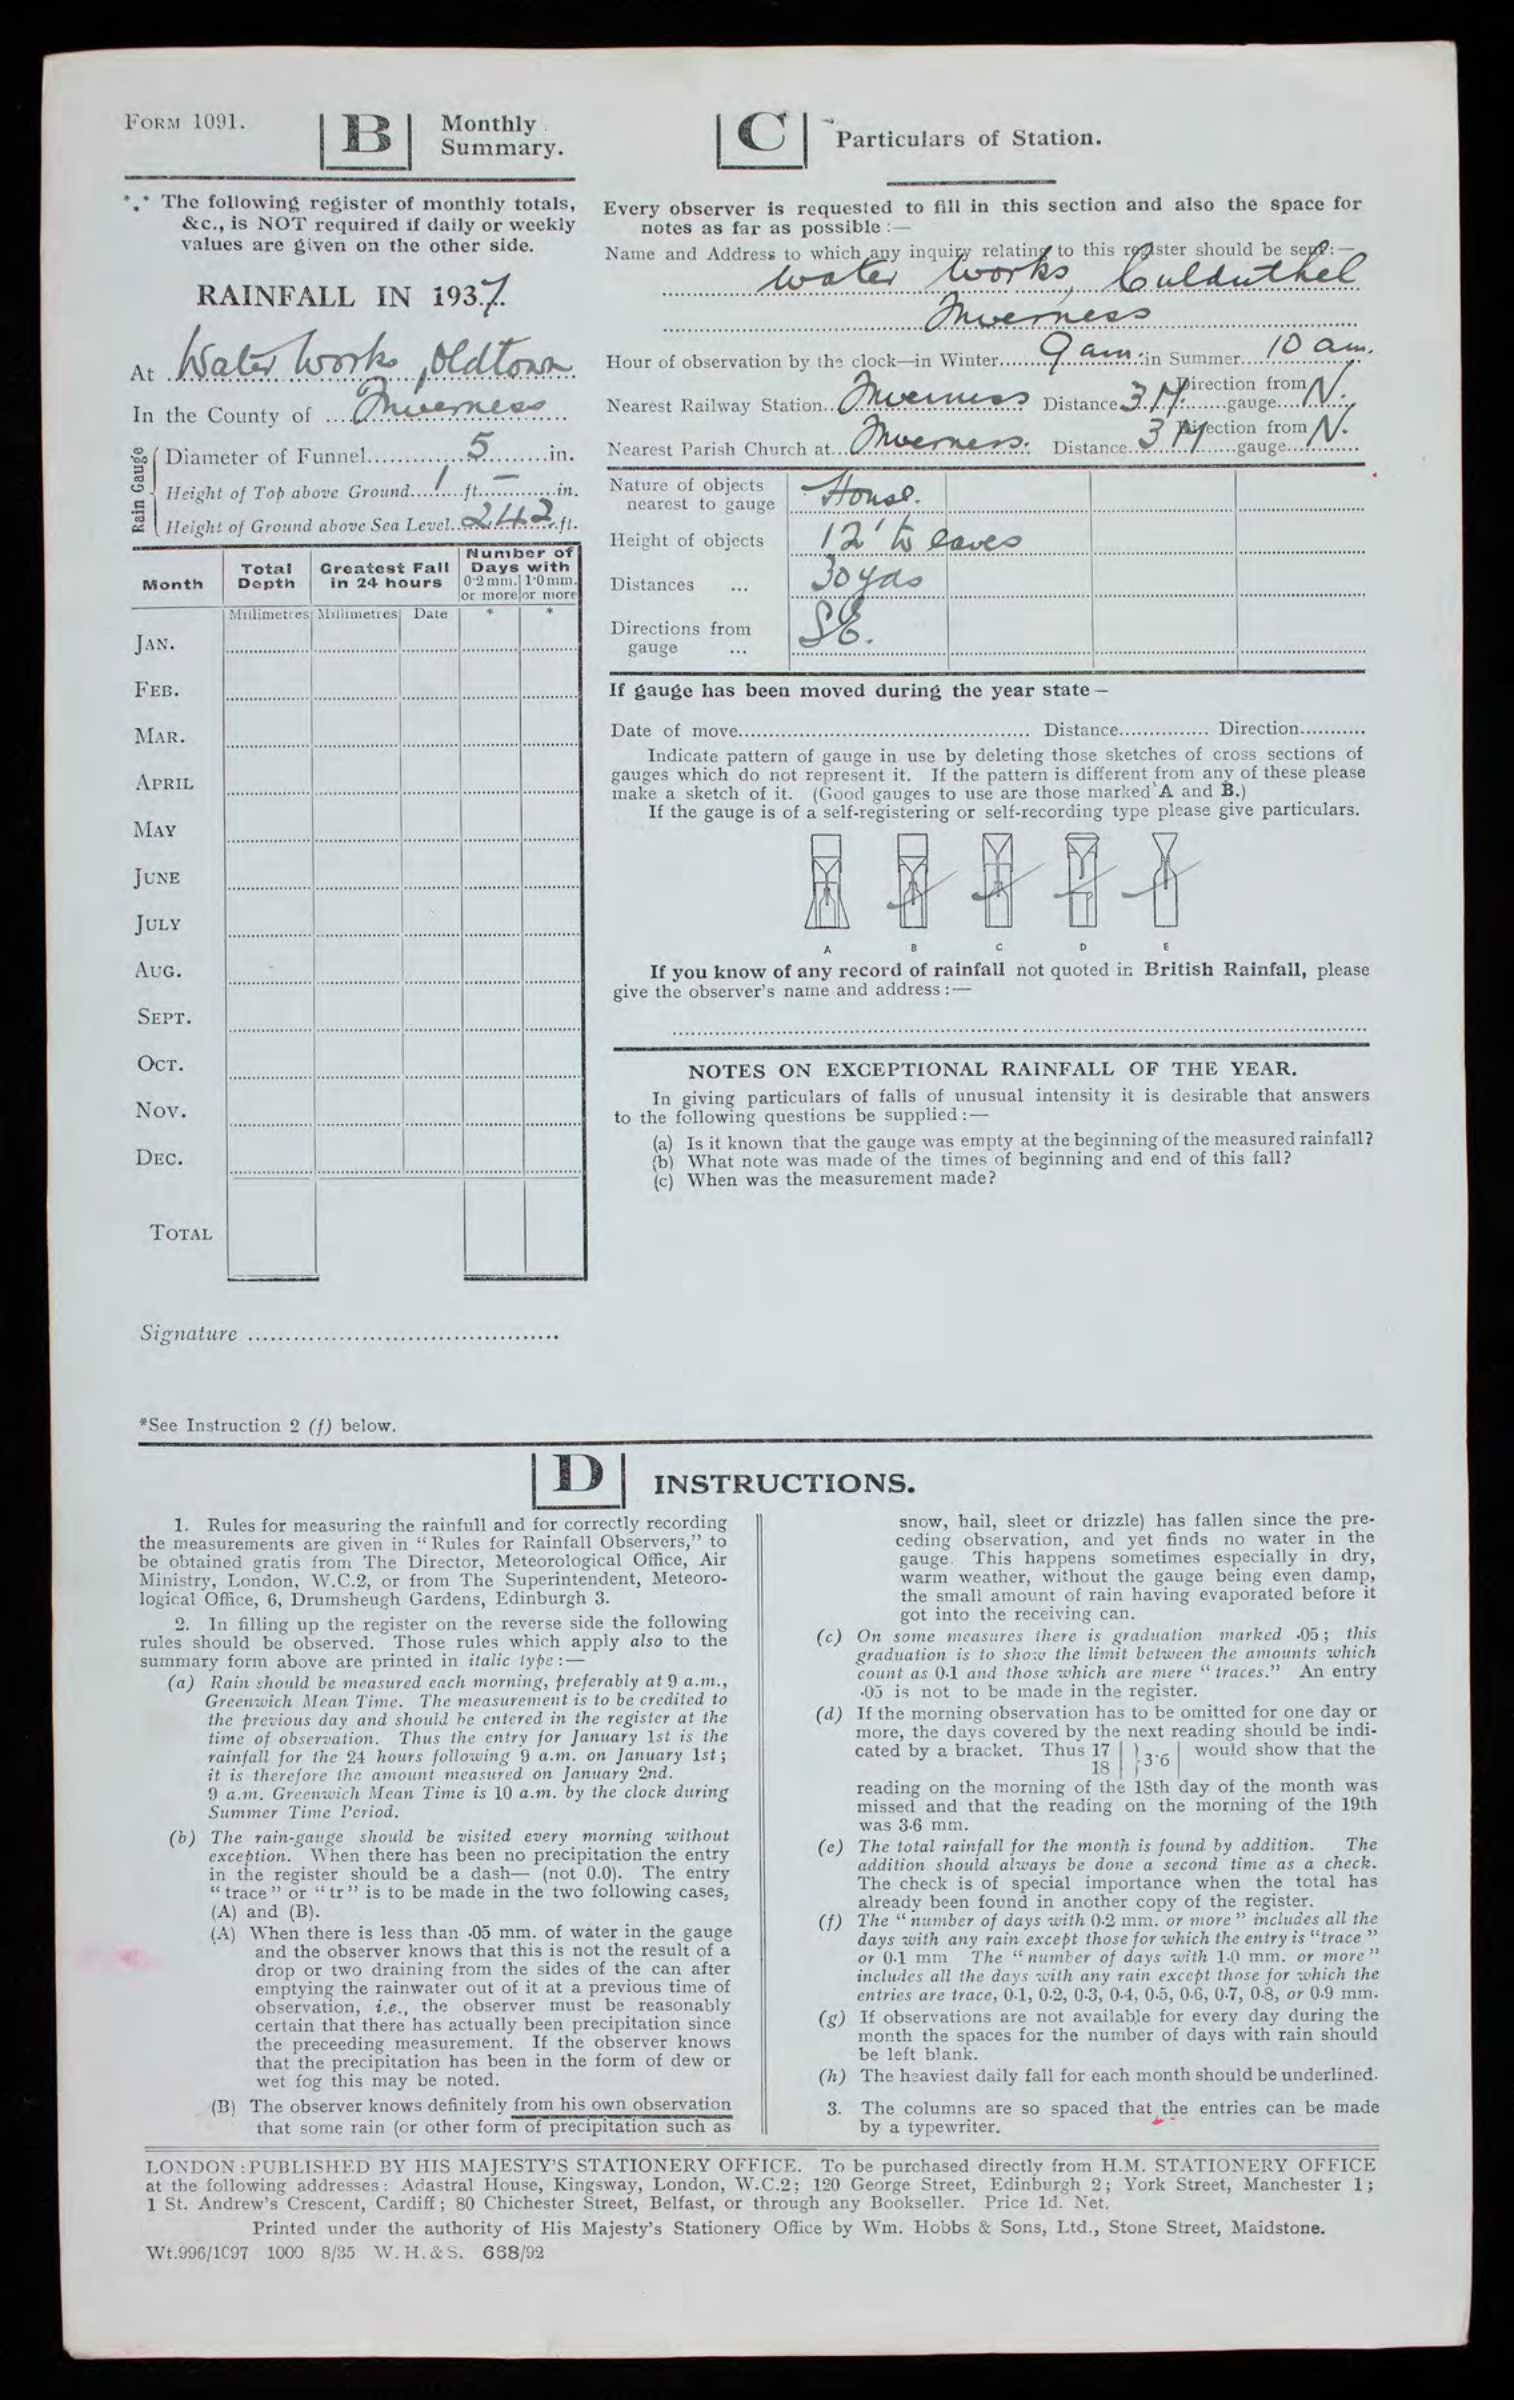 FORM 1091.
B
Monthly
Summary.
*** The following register of monthly totals,
&c., is NOT required if daily or weekly
values are given on the other side.
RAINFALL IN 1937.
At Water Works, Oldtown
In the County of Inverness
Rain Gauge
Diameter of Funnel 5 in.
Height of Top above Ground 1 ft. – in.
Height of Ground above Sea Level 242 ft.
Month
Total Depth
Greatest Fall in 24 hours
Number of Days with
0·2 mm. or more
1·0 mm. or more
Millimetres Millimetres Date * *
JAN.
FEB.
MAR.
APRIL
MAY
JUNE
JULY
AUG.
SEPT.
OCT.
NOV.
DEC.
TOTAL
Signature
*See Instruction 2 (f) below.
C
Particulars of Station.
Every observer is requested to fill in this section and also the space for
notes as far as possible :—
Name and Address to which any inquiry relating to this register should be sent :—
Water Works, Culduthel
Inverness
Hour of observation by the clock—in Winter 9 am. in Summer 10 am.
Nearest Railway Station Inverness Distance 3 M. Direction from gauge N.
Nearest Parish Church at Inverness. Distance 3 M Direction from gauge N.
Nature of objects nearest to gauge House.
Height of objects 12' to eaves
Distances ... 30 yds
Directions from gauge ... SE.
If gauge has been moved during the year state —
Date of move Distance Direction
Indicate pattern of gauge in use by deleting those sketches of cross sections of
gauges which do not represent it. If the pattern is different from any of these please
make a sketch of it. (Good gauges to use are those marked A and B.)
If the gauge is of a self-registering or self-recording type please give particulars.
A B C D E
If you know of any record of rainfall not quoted in British Rainfall, please
give the observer's name and address :—
NOTES ON EXCEPTIONAL RAINFALL OF THE YEAR.
In giving particulars of falls of unusual intensity it is desirable that answers
to the following questions be supplied :—
(a) Is it known that the gauge was empty at the beginning of the measured rainfall?
(b) What note was made of the times of beginning and end of this fall?
(c) When was the measurement made?
D
INSTRUCTIONS.
1. Rules for measuring the rainfull and for correctly recording
the measurements are given in "Rules for Rainfall Observers," to
be obtained gratis from The Director, Meteorological Office, Air
Ministry, London, W.C.2, or from The Superintendent, Meteoro-
logical Office, 6, Drumsheugh Gardens, Edinburgh 3.
2. In filling up the register on the reverse side the following
rules should be observed. Those rules which apply also to the
summary form above are printed in italic type :—
(a) Rain should be measured each morning, preferably at 9 a.m.,
Greenwich Mean Time. The measurement is to be credited to
the previous day and should be entered in the register at the
time of observation. Thus the entry for January 1st is the
rainfall for the 24 hours following 9 a.m. on January 1st ;
it is therefore the amount measured on January 2nd.
9 a.m. Greenwich Mean Time is 10 a.m. by the clock during
Summer Time Period.
(b) The rain-gauge should be visited every morning without
exception. When there has been no precipitation the entry
in the register should be a dash— (not 0.0). The entry
"trace" or "tr" is to be made in the two following cases,
(A) and (B).
(A) When there is less than ·05 mm. of water in the gauge
and the observer knows that this is not the result of a
drop or two draining from the sides of the can after
emptying the rainwater out of it at a previous time of
observation, i.e., the observer must be reasonably
certain that there has actually been precipitation since
the preceeding measurement. If the observer knows
that the precipitation has been in the form of dew or
wet fog this may be noted.
(B) The observer knows definitely from his own observation
that some rain (or other form of precipitation such as
snow, hail, sleet or drizzle) has fallen since the pre-
ceding observation, and yet finds no water in the
gauge. This happens sometimes especially in dry,
warm weather, without the gauge being even damp,
the small amount of rain having evaporated before it
got into the receiving can.
(c) On some measures there is graduation marked ·05 ; this
graduation is to show the limit between the amounts which
count as 0·1 and those which are mere "traces." An entry
·05 is not to be made in the register.
(d) If the morning observation has to be omitted for one day or
more, the days covered by the next reading should be indi-
cated by a bracket. Thus 17 18 } 3·6 would show that the
reading on the morning of the 18th day of the month was
missed and that the reading on the morning of the 19th
was 3·6 mm.
(e) The total rainfall for the month is found by addition. The
addition should always be done a second time as a check.
The check is of special importance when the total has
already been found in another copy of the register.
(f) The "number of days with 0·2 mm. or more" includes all the
days with any rain except those for which the entry is "trace"
or 0·1 mm The "number of days with 1·0 mm. or more"
includes all the days with any rain except those for which the
entries are trace, 0·1, 0·2, 0·3, 0·4, 0·5, 0·6, 0·7, 0·8, or 0·9 mm.
(g) If observations are not available for every day during the
month the spaces for the number of days with rain should
be left blank.
(h) The heaviest daily fall for each month should be underlined.
3. The columns are so spaced that the entries can be made
by a typewriter.
LONDON : PUBLISHED BY HIS MAJESTY'S STATIONERY OFFICE. To be purchased directly from H.M. STATIONERY OFFICE
at the following addresses : Adastral House, Kingsway, London, W.C.2 ; 120 George Street, Edinburgh 2 ; York Street, Manchester 1 ;
1 St. Andrew's Crescent, Cardiff ; 80 Chichester Street, Belfast, or through any Bookseller. Price 1d. Net.
Printed under the authority of His Majesty's Stationery Office by Wm. Hobbs & Sons, Ltd., Stone Street, Maidstone.
Wt.996/1097 1000 8/35 W.H.&S. 668/92